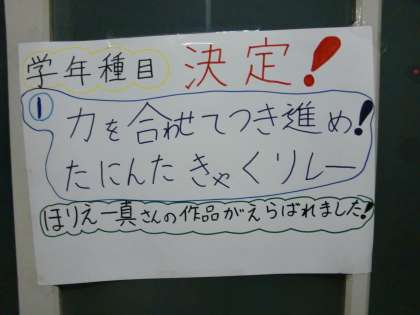 学年種目 決定!
① 力を合わせてつき進め!
たにんたきゃくリレー
ほりえ一真さんの作品がえらばれました!